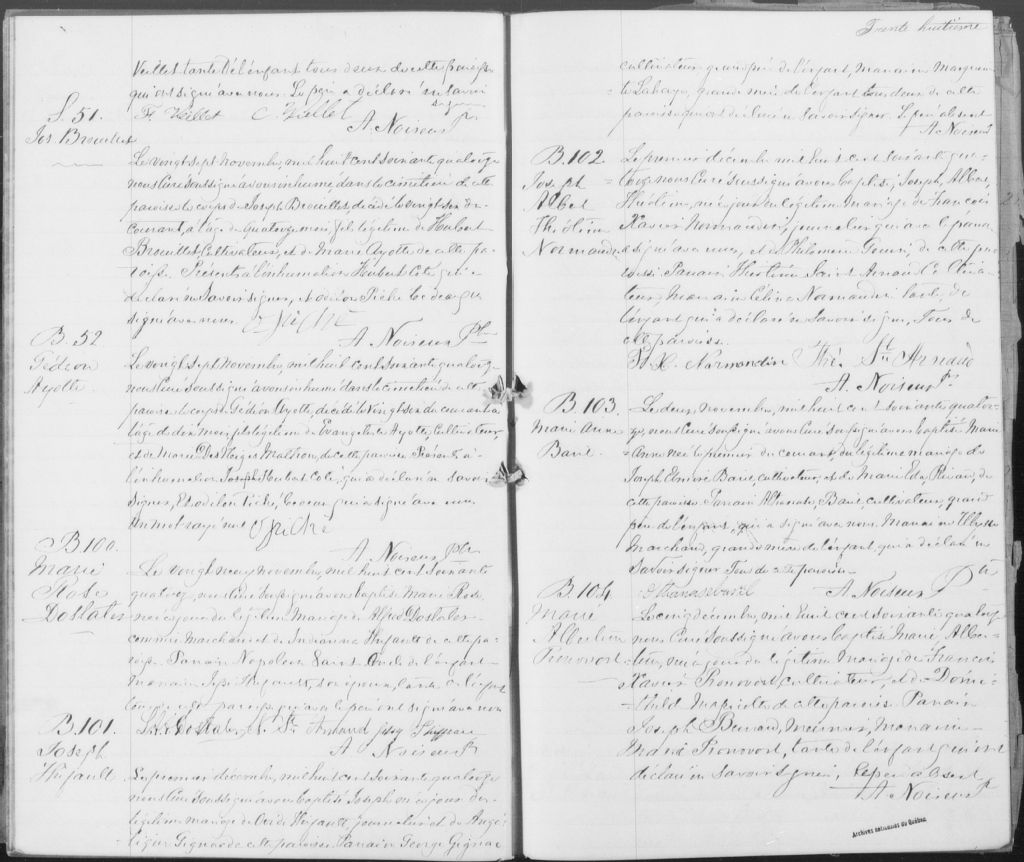 Veillet tante de l'enfant tous deux de cette paroisse
qui ont signé avec nous. Le père a déclaré ne savoir
signer
F. Veillet C. Veillet
A. Noiseux Ptre
S. 51.
Jos. Brouillet
Le vingt sept Novembre, mil huit cent soixante quatorze
nous Curé soussigné avons inhumé dans le cimetière de cette
paroisse le corps de Joseph Brouillet, décédé le vingt six du
courant, à l'âge de quatorze mois, fils légitime de Herbert
Brouillet, Cultivateur, et de Marie Ayotte de cette pa-
roisse. Présents à l'inhumation Herbert Coté qui a
déclaré ne savoir signer, et Odilon Piché bedeau qui a
signé avec nous.
O Piché
A. Noiseux Ptre
B. 52
Gédéon
Ayotte
Le vingt sept Novembre, mil huit cent soixante quatorze
nous Curé soussigné avons inhumé dans le cimetière de cette
paroisse le corps de Gédéon Ayotte, décédé le vingt six du courant à
l'âge de dix mois, fils légitime de Evangeliste Ayotte, Cultivateur,
et de Marie Des Neiges Mathon, de cette paroisse Présents à
l'inhumation Joseph Herbert Coté, qui a déclaré ne savoir
signer, Et Odilon Piché, bedeau qui a signé avec nous.
Un mot rayé nul O Piché
A. Noiseux Ptre
B. 100.
Marie
Rose
Dostaler
Le vingt neuf novembre, mil huit cent soixante
quatorze, nous Curé soussigné avons baptisé Marie Rose,
née ce jour du légitime mariage de Alfred Dostaler
commis Marchand et de Indianna Thifault de cette pa-
roisse. Parrain Napoleon Saint Arnaud oncle de l'enfant
Marraine Thifault, son épouse, tante de l'enfant
tous de cette paroisse, qui avec le père ont signé avec nous
Dostaler N. St Arnaud
A Noiseux Ptre
B. 101.
Joseph
Thifault
Le premier décembre, mil huit cent soixante quatorze
nous Curé soussigné avons baptisé Joseph né ce jour du
légitime mariage de Thifault Journalier et de Angé-
lique Gignac de cette paroisse. Parrain George Gignac
Trente huitième
cultivateur grand père de l'enfant, Marraine Marguerit
te Labarge, grande mère de l'enfant tous deux de cette
paroisse qui ont déclaré ne savoir signer. Le père absent
A. Noiseux
B. 102.
Joseph
Albert
Normandin
Le premier décembre mil huit cent soixante qua-
torze nous Curé soussigné avons baptisé, Joseph, Albert,
né ce jour du légitime mariage de Francois
Xavier Normandin, journalier qui avec le parrain
a signé avec nous, et de Philomène de cette pa-
roisse. Parrain Saint Arnaud Culti-
vateur Marraine Célina Normandin tante de
l'enfant qui a déclaré ne savoir signer, Tous de
cette paroisse.
F. X. Normandin St Arnaud
A. Noiseux Ptre
B. 103.
Marie Anne
Baril
Le deux, novembre, mil huit cent soixante quator-
ze, nous Curé soussigné avons Curé soussigné avons baptisé Marie
Anne née le premier du courant, du légitime mariage de
Joseph Baril, cultivateur, et de Marie de
cette paroisse. Parrain Athanase Baril, cultivateur, grand
père de l'enfant, qui a signé avec nous. Marraine
Marchand, grande mère de l'enfant, qui a déclaré ne
savoir signer Tous de cette paroisse
Athanase Baril A Noiseux Ptre
B. 104
Marie
Albertine
Pronovost
Le cinq décembre, mil huit cent soixante quatorze
nous Curé soussigné avons baptisé Marie Alber-
tine, née ce jour du légitime mariage de Francois
Xavier Pronovost, cultivateur, et de Domi-
thilde de cette paroisse. Parrain
Joseph Marraine
Marie Pronovost, tante de l'enfant qui ont
déclaré ne savoir signer, Le père absent
A Noiseux Ptre
Archives nationales du Québec